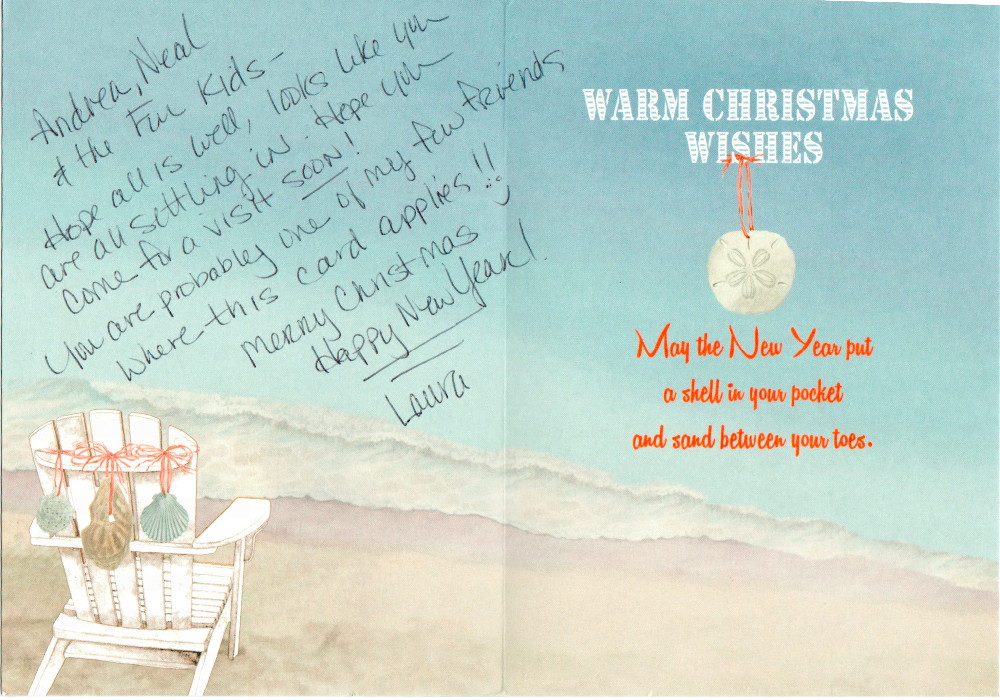 Andrea, Neal
& the Fur Kids -
Hope all is well, looks like you
are all settling in. Hope you
come for a visit soon!
You are probabley one of my few friends
where this card applies!!
Merry Christmas
Happy New Year!
Laura
WARM CHRISTMAS
WISHES
May the New Year put
a shell in your pocket
and sand between your toes.